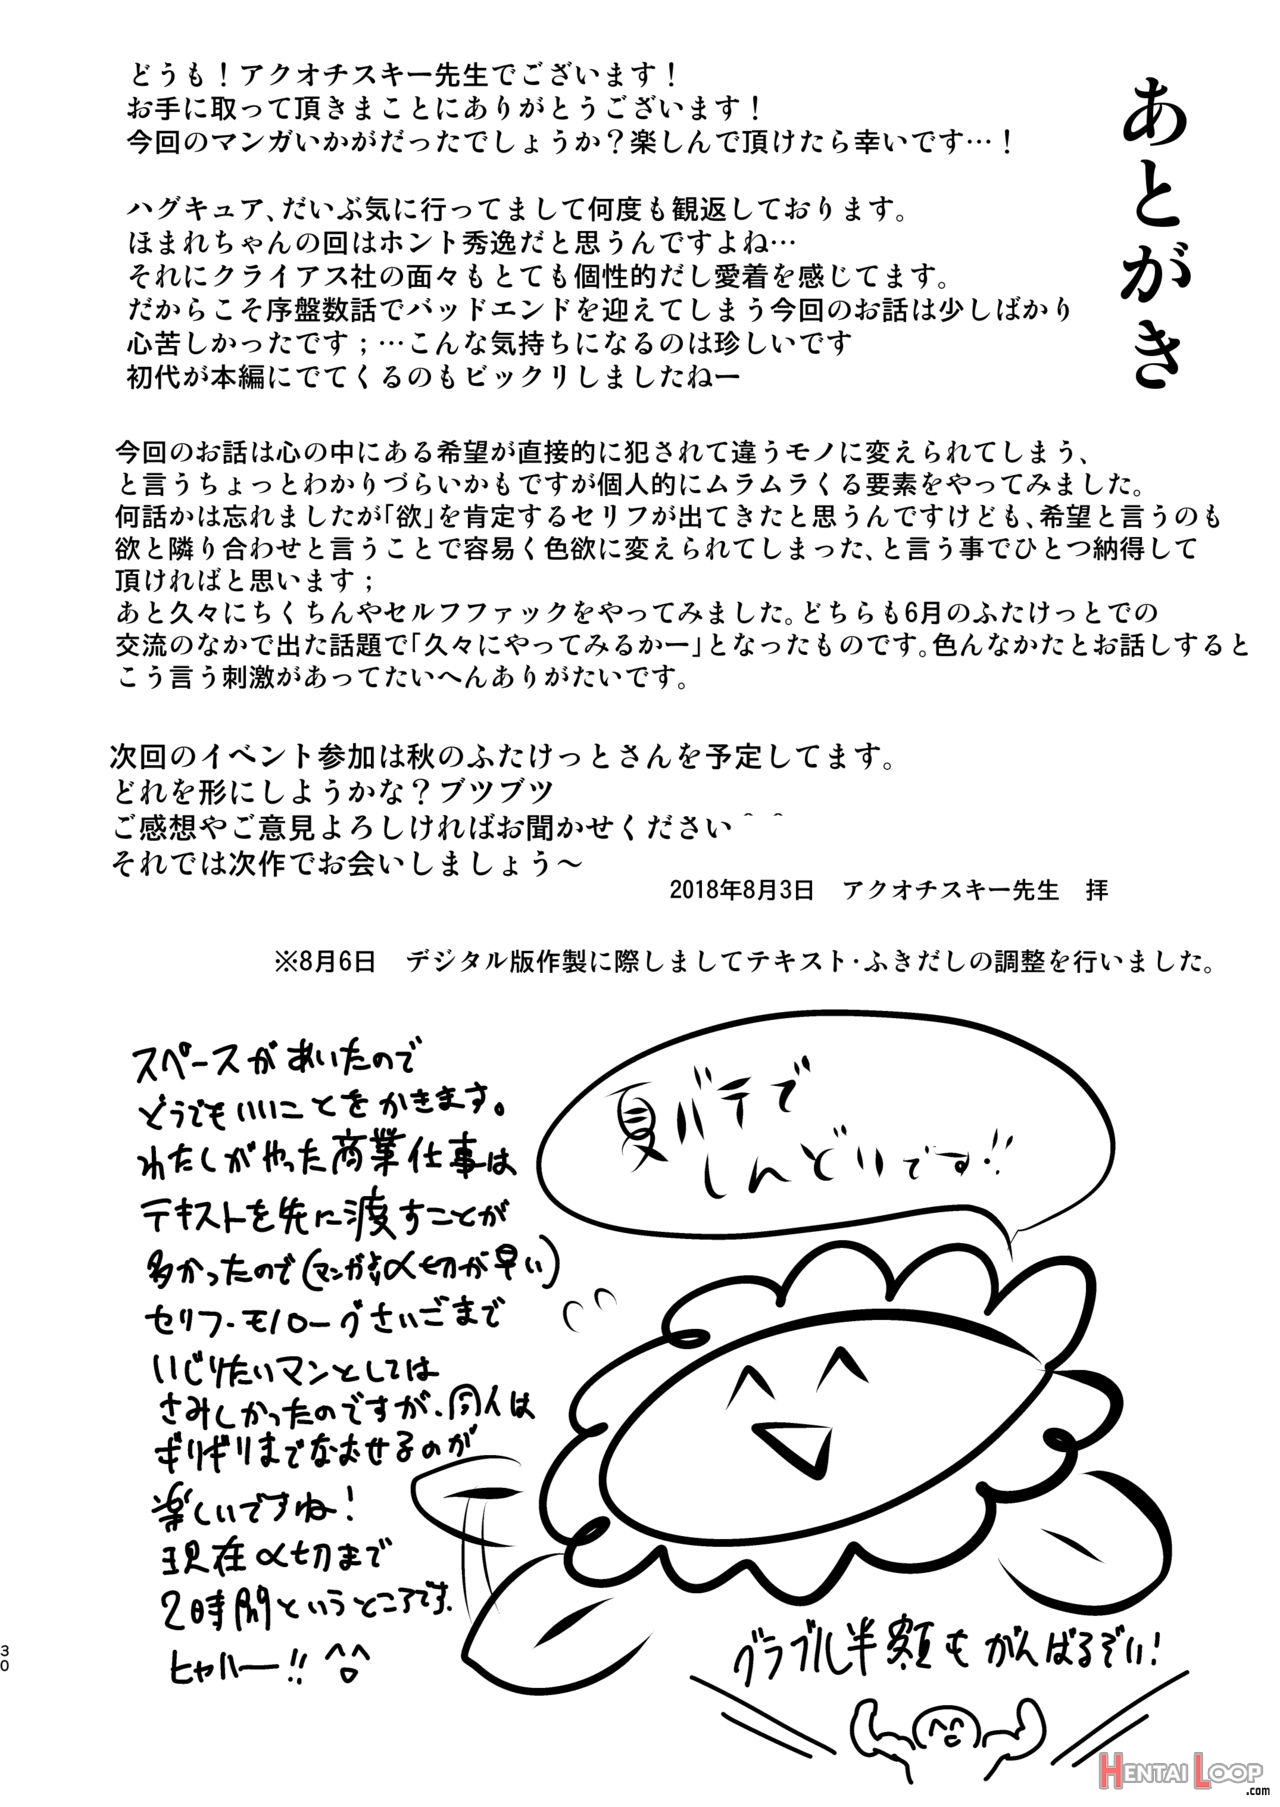 あとがき
どうも！アクオチスキー先生でございます！
お手に取って頂きまことにありがとうございます！
今回のマンガいかがだったでしょうか？楽しんで頂けたら幸いです…！
ハグキュア、だいぶ気に行ってまして何度も観返しております。
ほまれちゃんの回はホント秀逸だと思うんですよね…
それにクライアス社の面々もとても個性的だし愛着を感じてます。
だからこそ序盤数話でバッドエンドを迎えてしまう今回のお話は少しばかり
心苦しかったです；…こんな気持ちになるのは珍しいです
初代が本編にでてくるのもビックリしましたねー
今回のお話は心の中にある希望が直接的に犯されて違うモノに変えられてしまう、
と言うちょっとわかりづらいかもですが個人的にムラムラくる要素をやってみました。
何話かは忘れましたが「欲」を肯定するセリフが出てきたと思うんですけども、希望と言うのも
欲と隣り合わせと言うことで容易く色欲に変えられてしまった、と言う事でひとつ納得して
頂ければと思います；
あと久々にちくちんやセルフファックをやってみました。どちらも6月のふたけっとでの
交流のなかで出た話題で「久々にやってみるかー」となったものです。色んなかたとお話しすると
こう言う刺激があってたいへんありがたいです。
次回のイベント参加は秋のふたけっとさんを予定してます。
どれを形にしようかな？ブツブツ
ご感想やご意見よろしければお聞かせください＾＾
それでは次作でお会いしましょう～
2018年8月3日　アクオチスキー先生　拝
※8月6日　デジタル版作製に際しましてテキスト・ふきだしの調整を行いました。
スペースがあいたので
どうでもいいことをかきます。
わたしがやった商業仕事は
テキストを先に渡すことが
多かったので(マンガより〆切が早い)
セリフ・モノローグさいごまで
いじりたいマンとしては
さみしかったのですが、同人は
ギリギリまでなおせるのが
楽しいですね！
現在〆切まで
2時間というところです。
ヒャハー!! ^^
夏バテで
しんどいです!!
グラブル半額もがんばるぞい!
30
HENTAI LOOP
.com